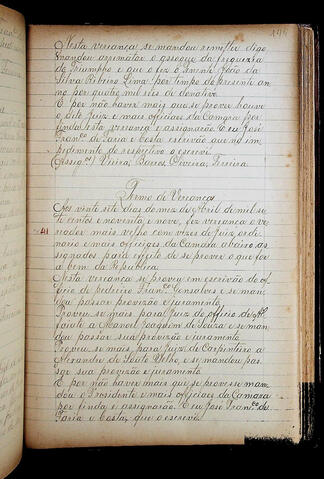 Nesta veriança se mandou remeter digo
mandou arrematar o açougue da freguezia
do Triumpho e que o fez o Tenente João da
Silva Ribeiro Lima por tempo do prezente an-
no por quatro mil reis de donativo
E por não haver mais que se prover houve
o dito Juiz e mais officiaes da Camara por
finda esta veriança e assignarão E eu José
Francº de Faria e Costa escrivão que no im-
pedimento do respectivo o escrevi
(Assigdos) Vieira, Barros, Oliveira, Ferreira
Termo de Veriança
Aos vinte sete dias do mez de Abril de mil se-
te centos e noventa e nove, fez veriança o ve-
reador mais velho com vezes de juiz orde-
nario e mais officiaes da Camara abaixo as-
signados para effeito de se prover o que for
a bem da Republica
Nesta veriança se proveu em escrivão do of-
ficio de Pedreiro Francº Gonsalves e se man-
dou passar provizão e juramento
Proveu se mais para Juiz do officio de
faiate a Manoel Joaquim de Souza e se man-
dou passar sua provizão e juramento
Proveu se mais para Juiz de Carpinteiro a
Alexandre de Velho, e se mandou pas-
sar sua provizão e juramento
E por não haver mais que prover se man-
dou o Presidente e mais officiaes da Camara
por finda e assignarão E eu José Francº de
Faria e Costa, que o escrevi